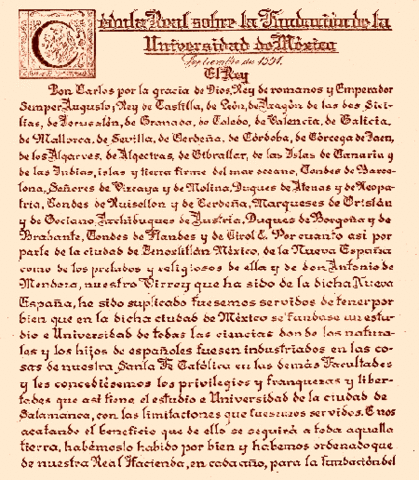 Cédula Real sobre la Fundación de la
Universidad de México
Septiembre de 1551.
El Rey
Don Carlos por la gracia de Dios, Rey de romanos y Emperador
Semper Augusto; Rey de Castilla, de León, de Aragón de las dos Sici-
lias, de Jerusalén, de Granada, de Toledo, de Valencia, de Galicia,
de Mallorca, de Sevilla, de Cerdeña, de Córdoba, de Córcega de Jaen,
de los Algarves, de Algeciras, de Gibraller, de las Islas de Canaria y
de las Indias, islas y tierra firme del mar oceano, Condes de Barce-
lona, Señores de Vizcaya y de Molina, Duques de Atenas y de Neopa-
tria, Condes de Ruisellon y de Cerdeña, Marqueses de Oristán
y de Gociano, Archiduques de Austria, Duques de Borgoña y de
Brabante, Condes de Flandes y de Tirol E. Por cuanto asi por
parle de la ciudad de Tenoxtitlán México, de la Nueva España
como de los prelados y religiosos de ella y de don Antonio de
Mendoza, nuestro Virrey que ha sido de la dicha Nueva
España, he sido suplicado fuesemos servidos de tener por
bien que en la dicha ciudad de México se fundase un estu-
dio e Universidad de todas las ciencias donde los natura-
les y los hijos de españoles fuesen industriados en las co-
sas de nuestra Santa Fé Católica en las demás Facultades
y les concediésemos los privilegios y franquezas y liber-
tades que así tiene el estudio e Universidad de la ciudad de
Salamanca, con las limitaciones que fuésemos servidos. E nos
acatando el beneficio que de ello se seguirá a toda aquella
tierra, habémoslo habido por bien y habemos ordenado que
de nuestra Real Hacienda, en cada año, para la fundación del